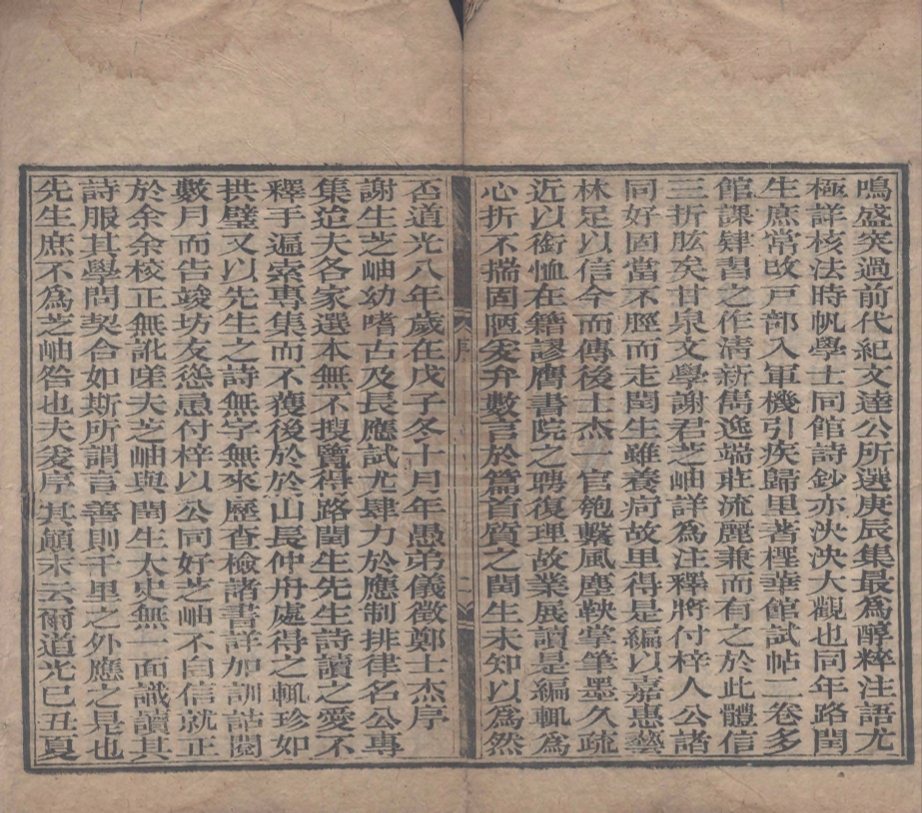 鳴盛突過前代紀文達公所選庚辰集最爲醇粹注語尤
極詳核法時帆學士同館詩鈔亦泱泱大觀也同年路閏
生庶常改戸部入軍機引疾歸里著檉華館試帖二卷多
館課肄習之作清新雋逸端莊流麗兼而有之於此體信
三折肱矣甘泉文學謝君芝岫詳爲注釋將付梓人公諸
同好固當不脛而走閏生雖養疴故里得是編以嘉惠藝
林足以信今而傳後士杰一官匏繫風塵鞅掌筆墨久疏
近以銜恤在籍謬膺書院之聘復理故業展讀是編輒爲
心折不揣固陋爰弁數言於篇首質之閏生未知以爲然
序
二
否道光八年歲在戊子冬十月年愚弟儀徵鄭士杰序
謝生芝岫幼嗜古及長應試尤肆力於應制排律名公專
集洎夫各家選本無不搜覽得路閏生先生詩讀之愛不
釋手遍索專集而不獲後於於山長仲舟處得之輒珍如
拱璧又以先生之詩無字無來歷查檢諸書詳加訓詁閱
數月而告竣坊友慫恿付梓以公同好芝岫不自信就正
於余余校正無訛嗟夫芝岫與閏生太史無一面識讀其
詩服其學問契合如斯所謂言善則千里之外應之是也
先生庶不爲芝岫咎也夫爰序其顛末云爾道光己丑夏